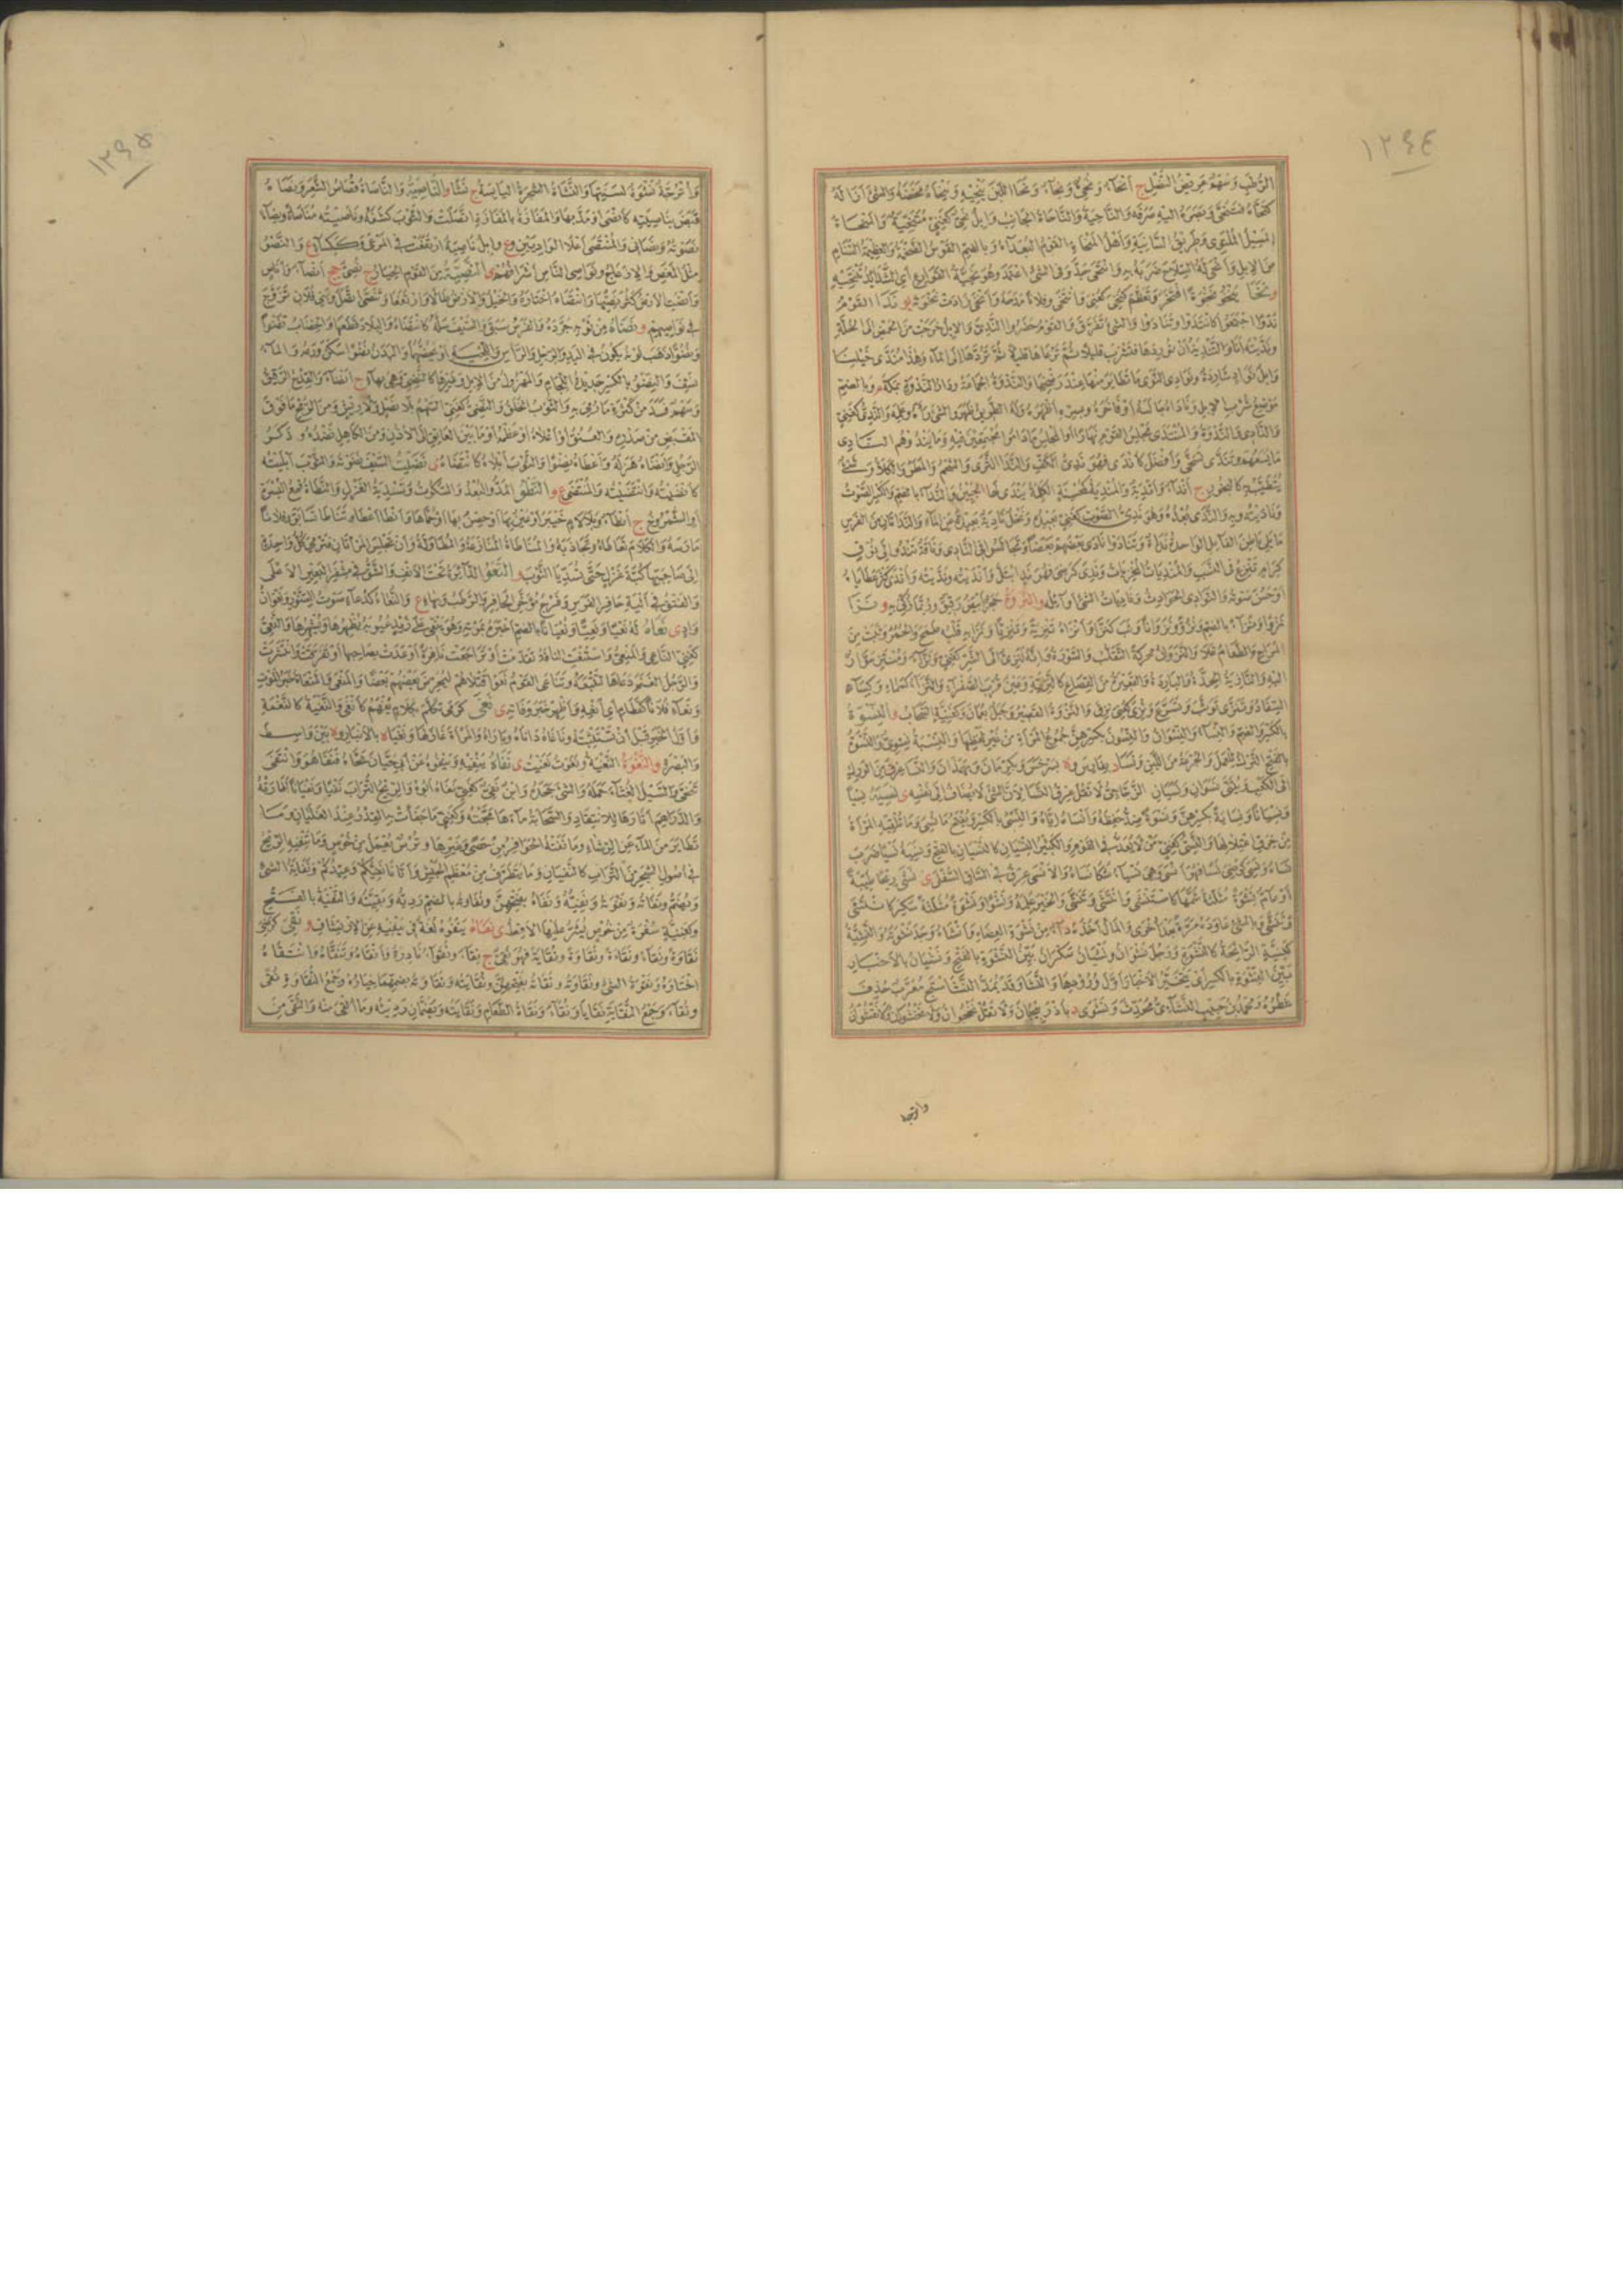 ١٢٩٤
الرطب وسهم عريض النصل ج أنحاء ونحي ونحاء ونحا اللبن ينحيه وينحاه مخضه والشيء أزاله
كنحاه فتنحى وبصره إليه صرفه والناحية والناحاة الجانب وإبل نحي كغني متنحية والمنحاة
المسيل الملتوي وطريق السانية وأهل المنحاة القوم البعداء وبالضم القوس الضخمة والعظيمة السنام
من الإبل وأنحى له السلاح ضربه به وانتحى جد وفي الشيء اعتمد وهو نحية القوارع أي الشدائد تنتحيه
و نخا ينخو نخوة افتخر وتعظم كنخي كعني وانتخى وفلانا مدحه وأنخى زادت نخوته و ندا القوم
ندوا اجتمعوا كانتدوا وتنادوا والشيء تفرق والقوم حضروا الندي والإبل خرجت من الحمض إلى الخلة
ونديتها أنا والتندية أن توردها فتشرب قليلا ثم ترعاها قليلا ثم تردها إلى الماء وهذا مندى خيلنا
وإبل نواد شاردة ونوادي النوى ما تطاير منها عند رضخها والندوة الجماعة ودار الندوة بمكة م وبالضم
موضع شرب الإبل وناداه جالسه أو فاخره وبسره أظهره وله الطريق ظهر والشيء رآه وعلمه والندي كغني
والنادي والندوة والمنتدى مجلس القوم نهارا أو المجلس ما داموا مجتمعين فيه وما يندوهم النادي
ما يسعهم وتندى تسخى وأفضل كأندى فهو ندي الكف والندى الثرى والشحم والمطر والكلأ وشيء
يتطيب به كالبخور ج أنداء وأندية والمندية كمحسنة الكلمة يندى لها الجبين والنداء بالضم والكسر الصوت
وناديته وبه والندى بعده وهو ندي الصوت كغني بعيده ونخل نادية بعيدة عن الماء والنداتان من الفرس
ما يلي باطن الفائل الواحدة نداة وتنادوا نادى بعضهم بعضا وتجالسوا في النادي وناقة تندو إلى نوق
كرام تنزع في النسب والمنديات المخزيات وندي كرضي فهو ند ابتل وأنديته ونديته وأندى كثر عطاياه
أو حسن صوته والنوادي الحوادث وناديات الشيء أوائله والنروة حجر أبيض رقيق وربما ذكي به و نزا
نزوا ونزاء بالضم ونزوا ونزوانا وثب كنزى وأنزاه ونزاه تنزية وتنزيا ونزا به قلبه طمح والحمر وثبت من
المراح والطعام غلا والنزوان محركة التقلب والسورة وإنه لنزي إلى الشر كغني ونزاء ومتنز سوار
إليه والنازية الحدة والبادرة والقعيرة من القصاع كالنزية وعين قرب الصفراء والنزاء كسماء وكساء
السفاد وتنزى توثب وتسرع ونزي كعني نزف والنزوة القصير وجبل بعمان وكغنية السحاب والنسوة
بالكسر والضم والنساء والنسوان والنسون بكسرهن جموع المرأة من غير لفظها والنسبة نسوي والنسوة
بالفتح الترك للعمل والجرعة من اللبن ونسا د بفارس وة بسرخس وبكرمان وبهمذان والنسا عرق من الورك
إلى الكعب ويثنى نسوان ونسيان الزجاج لا تقل عرق النسا لأن الشيء لا يضاف إلى نفسه ي نسيه نسيا
ونسيانا ونساية بكسرهن ونسوة ضد حفظه وأنساه إياه والنسي بالكسر ويفتح ما نسي وما تلقيه المرأة
من خرق اعتلالها والنسي كغني من لا يعد في القوم والكثير النسيان كالنسيان بالفتح ونسيه نسيا ضرب
نساه ونسي كرضي نسا فهو أنسى وهي نسياء شكا نساه والأنسى عرق في الساق السفلى ي نشي ريحا طيبة
أو عام نشوة مثلثة شمها كاستنشى وانتشى وتنشى والخبر علمه ونشوا ونشوة مثلثة سكر كانتشى
وتنشى وبالشيء عاوده مرة بعد أخرى والمال أخذه داء من نشوة العضاه وأنشاه وجد نشوته والنشية
كغنية الرائحة كالنشوة ورجل نشوان ونشيان سكران بين النشوة بالفتح ونشيان بالأخبار
بين النشوة بالكسر أي يتخبر الأخبار أول ورودها والنشا وقد يمد النشاستج معرب حذف
شطره ومحمد بن حبيب النشائي محدث ونشوى د بأذربيجان ولا تقل نخجوان ولا نخشوان ولا نقشوان
وانرجة
١٢٩٥
وانرجة نشوة لسنتها والنشاة الشجرة اليابسة ج نشا و الناصية والناصاة قصاص الشعر ونصاه
قبض بناصيته كأنصى أو مد بها والمفازة بالمفازة اتصلت والثوب كشفه وناصيته مناصاة ونصاء
نصوته ونصاني والمنتصى أعلى الواديين وع وإبل ناصية ارتفعت في المرعى وككساء ع والنصو
مثل المغص والإزعاج ونواصي الناس أشرافهم ي النصية من القوم الخيار ج نصي جج أنصاء وأناص
وأنصت الأرض كثر نصيها وانتصاه اختاره والجبل والأرض طالا وارتفعا وتنصى اتصل وبني فلان تزوج
في نواصيهم و نضاه من ثوبه جرده والفرس سبق والسيف سله كانتضاه والبلاد قطعها والخضاب نضوا
ونضوا ذهب لونه يكون في اليد والرجل والرأس واللحية أو يخصهما والبدن نضوا سكن ورمه والماء
نشف والنضو بالكسر حديدة اللجام والمهزول من الإبل وغيرها كالنضي وهي بهاء ج أنضاء والقدح الرقيق
وسهم فسد من كثرة ما رمي به والثوب الخلق والنضي كغني السهم بلا نصل ولا ريش ومن الرمح ما فوق
المقبض من صدره والعنق أو أعلاه أو عظمه أو ما بين العاتق إلى الأذن ومن الكاهل نضده وذكر
الرجل وأنضاه هزله وأعطاه نضوا والثوب أبلاه كانتضاه ي نضيت السيف نضوته والثوب أبليته
كأنضيته وانتضيته والمنتضى ع و النطو المد والبعد والسكوت وتسدية الغزل والنطاة قمع البسرة
أو الشمروخ ج أنطاء وبلا لام خيبر أو عين بها أو حصن بها أو حماها وأنطى أعطى وتناطى تسابق وفلانا
مارسه والكلام تعاطاه وتجاذبه والمناطاة المنازعة والمطاولة وأن تجلس المرأتان فترمي كل واحدة
إلى صاحبتها كبة غزل حتى تسديا الثوب و النعو الدائرة تحت الأنف والشق في مشفر البعير الأعلى
والفتق في ألية حافر الفرس وفرج مؤخر الحافر والرطب وبهاء ع والنعاء كدعاء صوت السنور ونعوان
واد ي نعاه له نعيا ونعيا ونعيانا بالضم أخبره بموته وهو ينعى على زيد ذنوبه يظهرها ويشهرها والنعي
كغني الناعي والمنعي واستنعت الناقة تقدمت أو تراجعت نافرة أو عدت بصاحبها أو تفرقت وانتشرت
والرجل الغنم دعاها لتتبعه وتناعى القوم نعوا قتلاهم ليحرض بعضهم بعضا والمنعى والمنعاة خبر الموت
ونعاء فلانا كقطام أي انعه وأظهر خبر وفاته ي نغى كرمى تكلم بكلام يفهم كأنغى والنغية كالنغمة
وأول الخبر قبل أن تستثبته وناغاه داناه وباراه والمرأة غازلها ونغيا ة بالأنبار وة بين واسط
والبصرة والنغوة النغية ونغوت نغيت ي نفاه ينفيه وينفوه عن أبي حيان نحاه فنفا هو وانتفى
تنحى والسيل الغثاء حمله والشيء جحده وابن نفي كغني نفاه أبوه والريح التراب نفيا ونفيانا أطارته
والدراهم أثارها للانتقاد والسحابة ماءها مجته وكغني ما جفأت به القدر عند الغليان وما
تطاير من الماء عن الرشاء وما نفته الحوافر من حصى وغيرها وترس يعمل من خوص وما تنفيه الريح
في أصول الشجر من التراب كالنفيان وما يتطرف من معظم الجيش وأتانا نفيكم وعيدكم ونفاية الشيء
ويضم ونفاته ونفوته ونفيته ونفاه بفتحهن ونفاوته بالضم رديه وبقيته والنفية بالفتح
وكغنية سفرة من خوص يشر عليها الأقط ي نقاه ينقوه لغة في ينفيه عن ابن و نقي كرضي
نقاوة ونقاء ونقاءة ونقاوة ونقاية فهو نقي ج نقاء ونقواء نادرة وأنقاه وتنقاه وانتقاه
اختاره ونقوة الشيء ونقاوته ونقاته بفتحهن ونقايته ونقاوته بضمهما خياره وجمع النقاوة نقى
ونقاء وجمع النقاية نقايا ونقاء ونقاة الطعام ونقايته ويضمان رديئه وما ألقي منه والنقى من